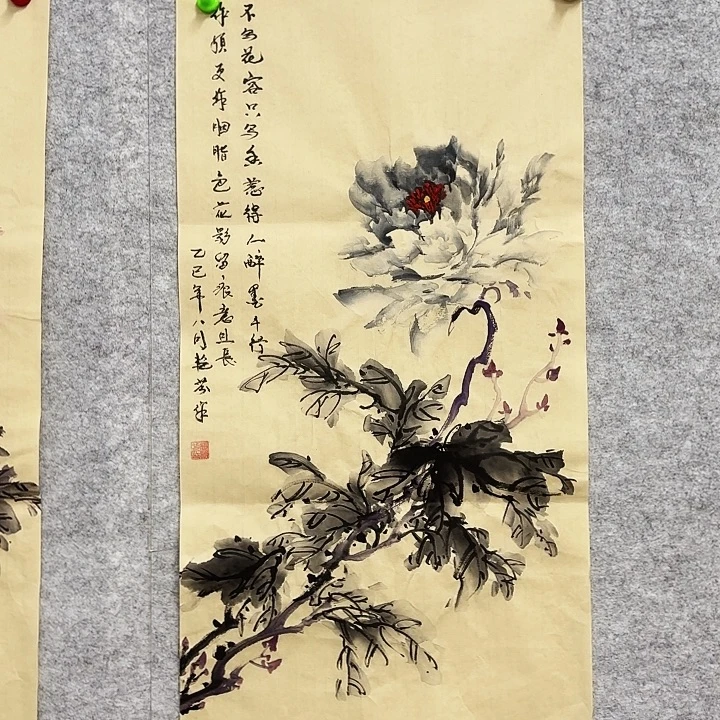 不写花容只写香惹得人醉墨千行
作颂更称胭脂色花影留痕意且长
乙巳年八月艳芬作